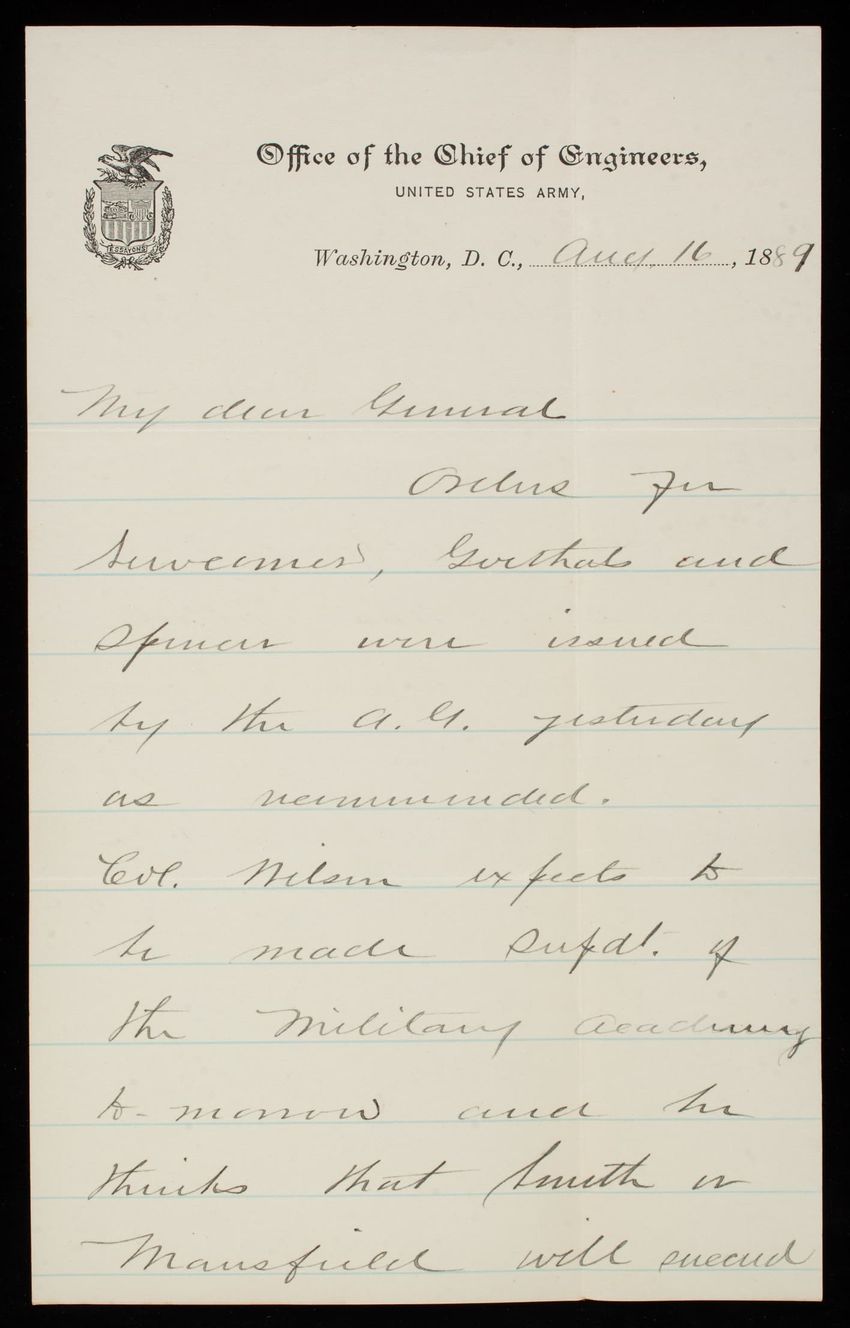 ESSAYONS
Office of the Chief of Engineers,
UNITED STATES ARMY,
Washington, D. C., Aug. 16, 1889
My dear General
Orders for
Newcomer, Goethals and
Spencer were issued
by the A.G. yesterday
as recommended.
Col. Wilson expects to
be made Supdt. of
the Military Academy
to-morrow and he
thinks that Smith or
Mansfield will succeed